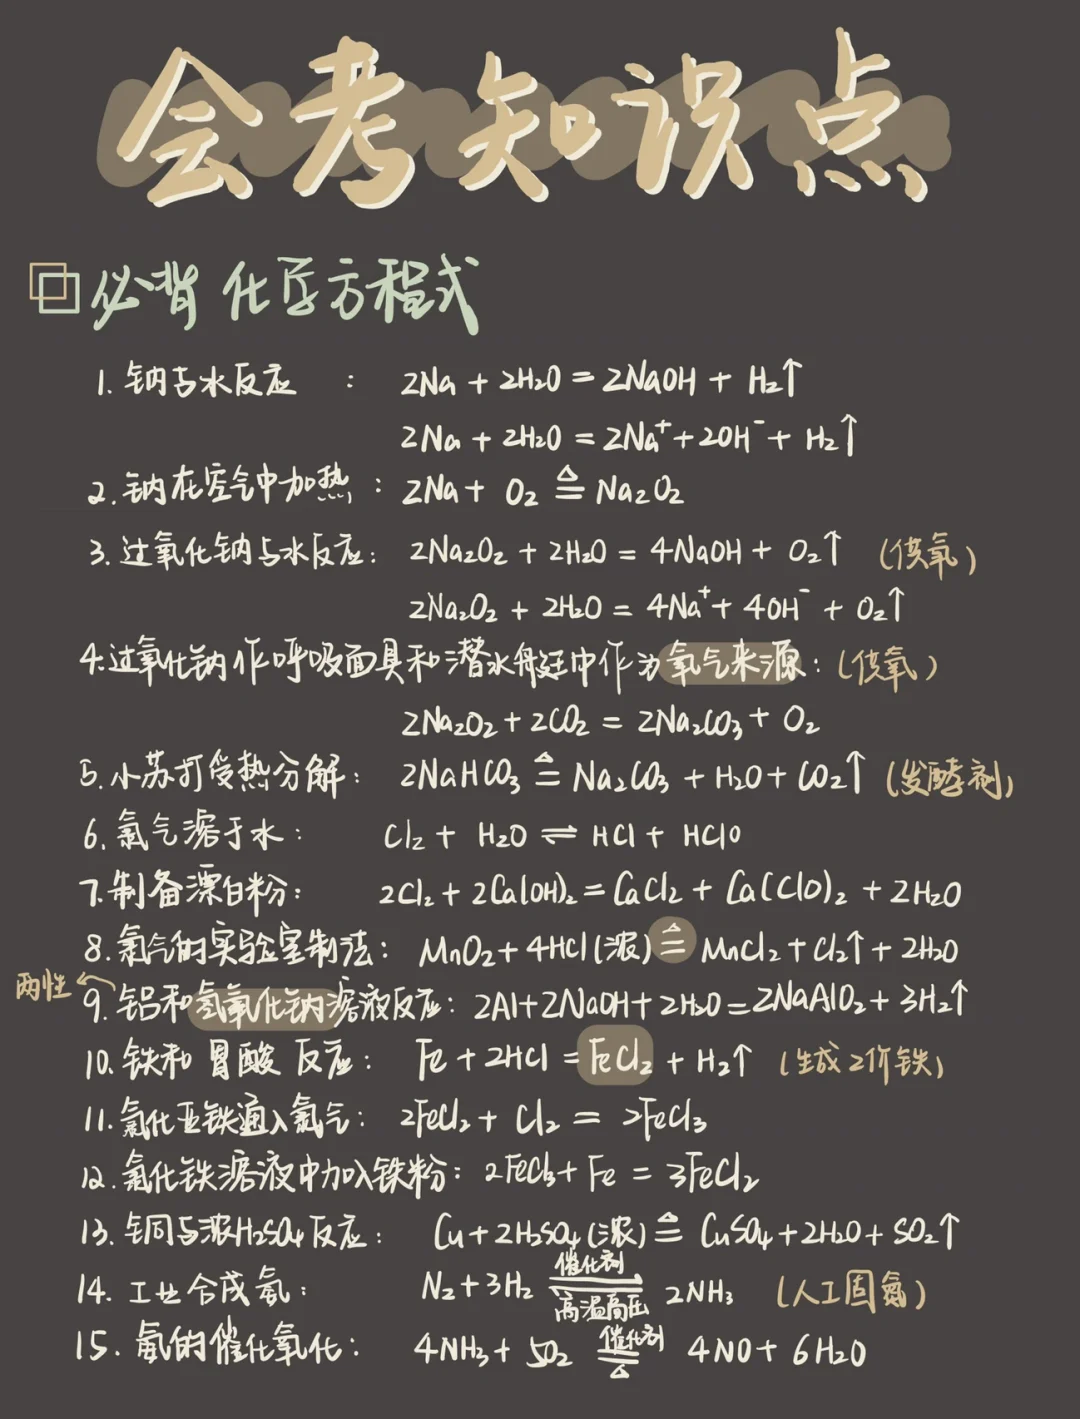 会考知识点
必背化学方程式
1. 钠与水反应 : 2Na + 2H₂O = 2NaOH + H₂↑
2Na + 2H₂O = 2Na⁺ + 2OH⁻ + H₂↑
2. 钠在空气中加热 : 2Na + O₂ ≜ Na₂O₂
3. 过氧化钠与水反应: 2Na₂O₂ + 2H₂O = 4NaOH + O₂↑ (供氧)
2Na₂O₂ + 2H₂O = 4Na⁺ + 4OH⁻ + O₂↑
4. 过氧化钠作呼吸面具和潜水舰艇中作为氧气来源: (供氧)
2Na₂O₂ + 2CO₂ = 2Na₂CO₃ + O₂
5. 小苏打受热分解: 2NaHCO₃ ≜ Na₂CO₃ + H₂O + CO₂↑ (发酵剂)
6. 氯气溶于水: Cl₂ + H₂O ⇌ HCl + HClO
7. 制备漂白粉: 2Cl₂ + 2Ca(OH)₂ = CaCl₂ + Ca(ClO)₂ + 2H₂O
8. 氯气的实验室制法: MnO₂ + 4HCl(浓) ≜ MnCl₂ + Cl₂↑ + 2H₂O
两性←
9. 铝和氢氧化钠溶液反应: 2Al + 2NaOH + 2H₂O = 2NaAlO₂ + 3H₂↑
10. 铁和胃酸反应: Fe + 2HCl = FeCl₂ + H₂↑ (生成2价铁)
11. 氯化亚铁通入氯气: 2FeCl₂ + Cl₂ = 2FeCl₃
12. 氯化铁溶液中加入铁粉: 2FeCl₃ + Fe = 3FeCl₂
13. 铜与浓H₂SO₄反应: Cu + 2H₂SO₄(浓) ≜ CuSO₄ + 2H₂O + SO₂↑
催化剂
14. 工业合成氨: N₂ + 3H₂ ⇌ 2NH₃ (人工固氮)
高温高压
催化剂
15. 氨的催化氧化: 4NH₃ + 5O₂ ≡ 4NO + 6H₂O
△